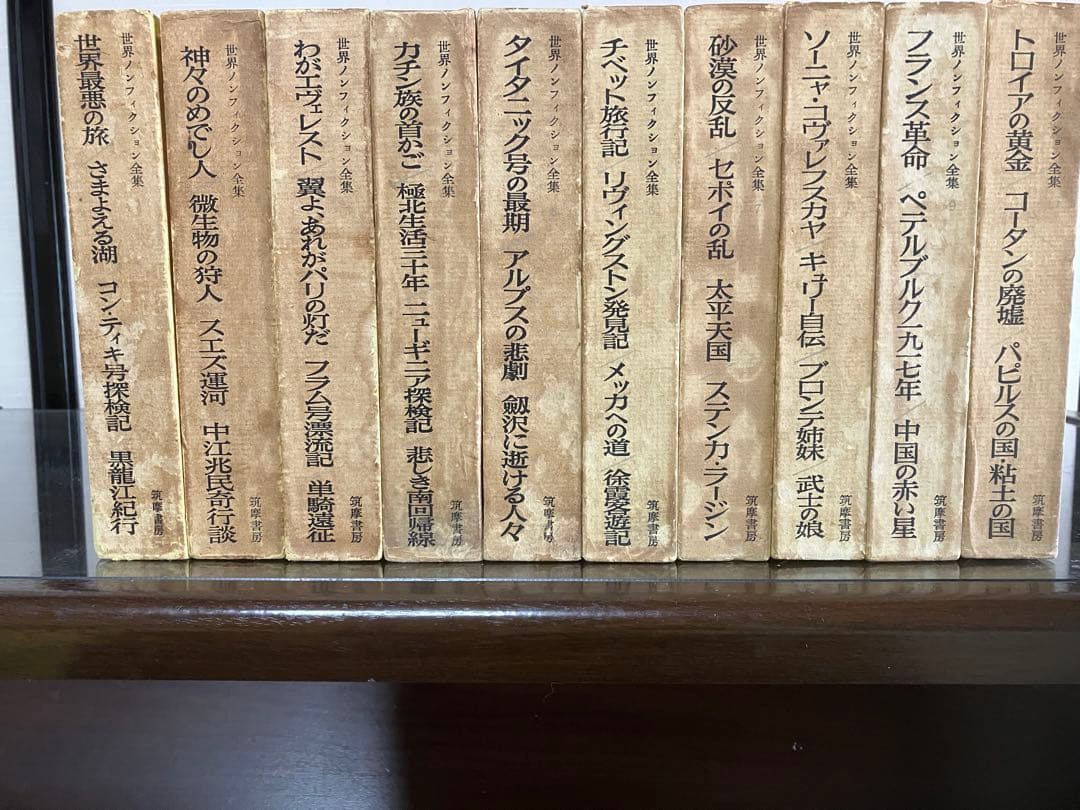 世界ノンフィクション全集
世界最悪の旅 さまよえる湖 コン・ティキ号探検記 黒龍江紀行
筑摩書房
世界ノンフィクション全集
神々のめでし人 微生物の狩人 スエズ運河 中江兆民奇行談
筑摩書房
世界ノンフィクション全集
わがエヴェレスト 翼よ、あれがパリの灯だ フラム号漂流記 単騎遠征
筑摩書房
世界ノンフィクション全集
カチン族の首かご/極北生活三十年 ニューギニア探検記 悲しき南回帰線
筑摩書房
世界ノンフィクション全集
タイタニック号の最期 アルプスの悲劇 劔沢に逝ける人々
筑摩書房
世界ノンフィクション全集
チベット旅行記 リヴィングストン発見記/メッカへの道/徐霞客遊記
筑摩書房
世界ノンフィクション全集 7
砂漠の反乱/セポイの乱 太平天国 ステンカ・ラージン
筑摩書房
世界ノンフィクション全集
ソーニャ・コヴァレフスカヤ/キュリー自伝/ブロンテ姉妹/武士の娘
筑摩書房
世界ノンフィクション全集 9
フランス革命/ペテルブルク一九一七年/中国の赤い星
筑摩書房
世界ノンフィクション全集
トロイアの黄金 コータンの廃墟 パピルスの国・粘土の国
筑摩書房